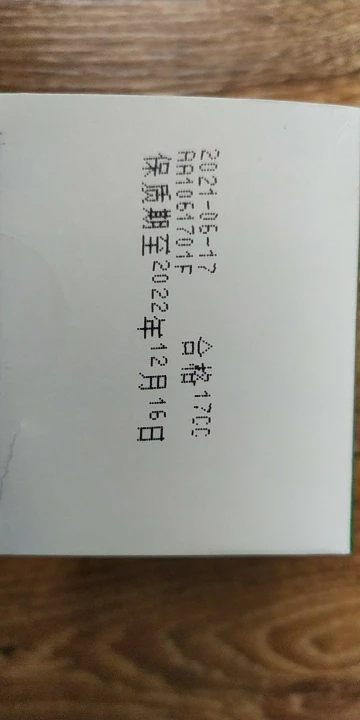 2021-06-17
AA1061701F 合格1700
保质期至2022年12月16日